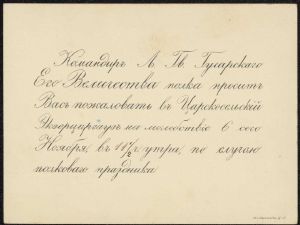 Командиръ Л. Гв. Гусарскаго
Его Величества полка проситъ
Васъ пожаловать въ Царскосельскій
Экзерциргаузъ на молебствіе 6 сего
Ноября, въ 10½ ч. утра, по случаю
полковаго праздника